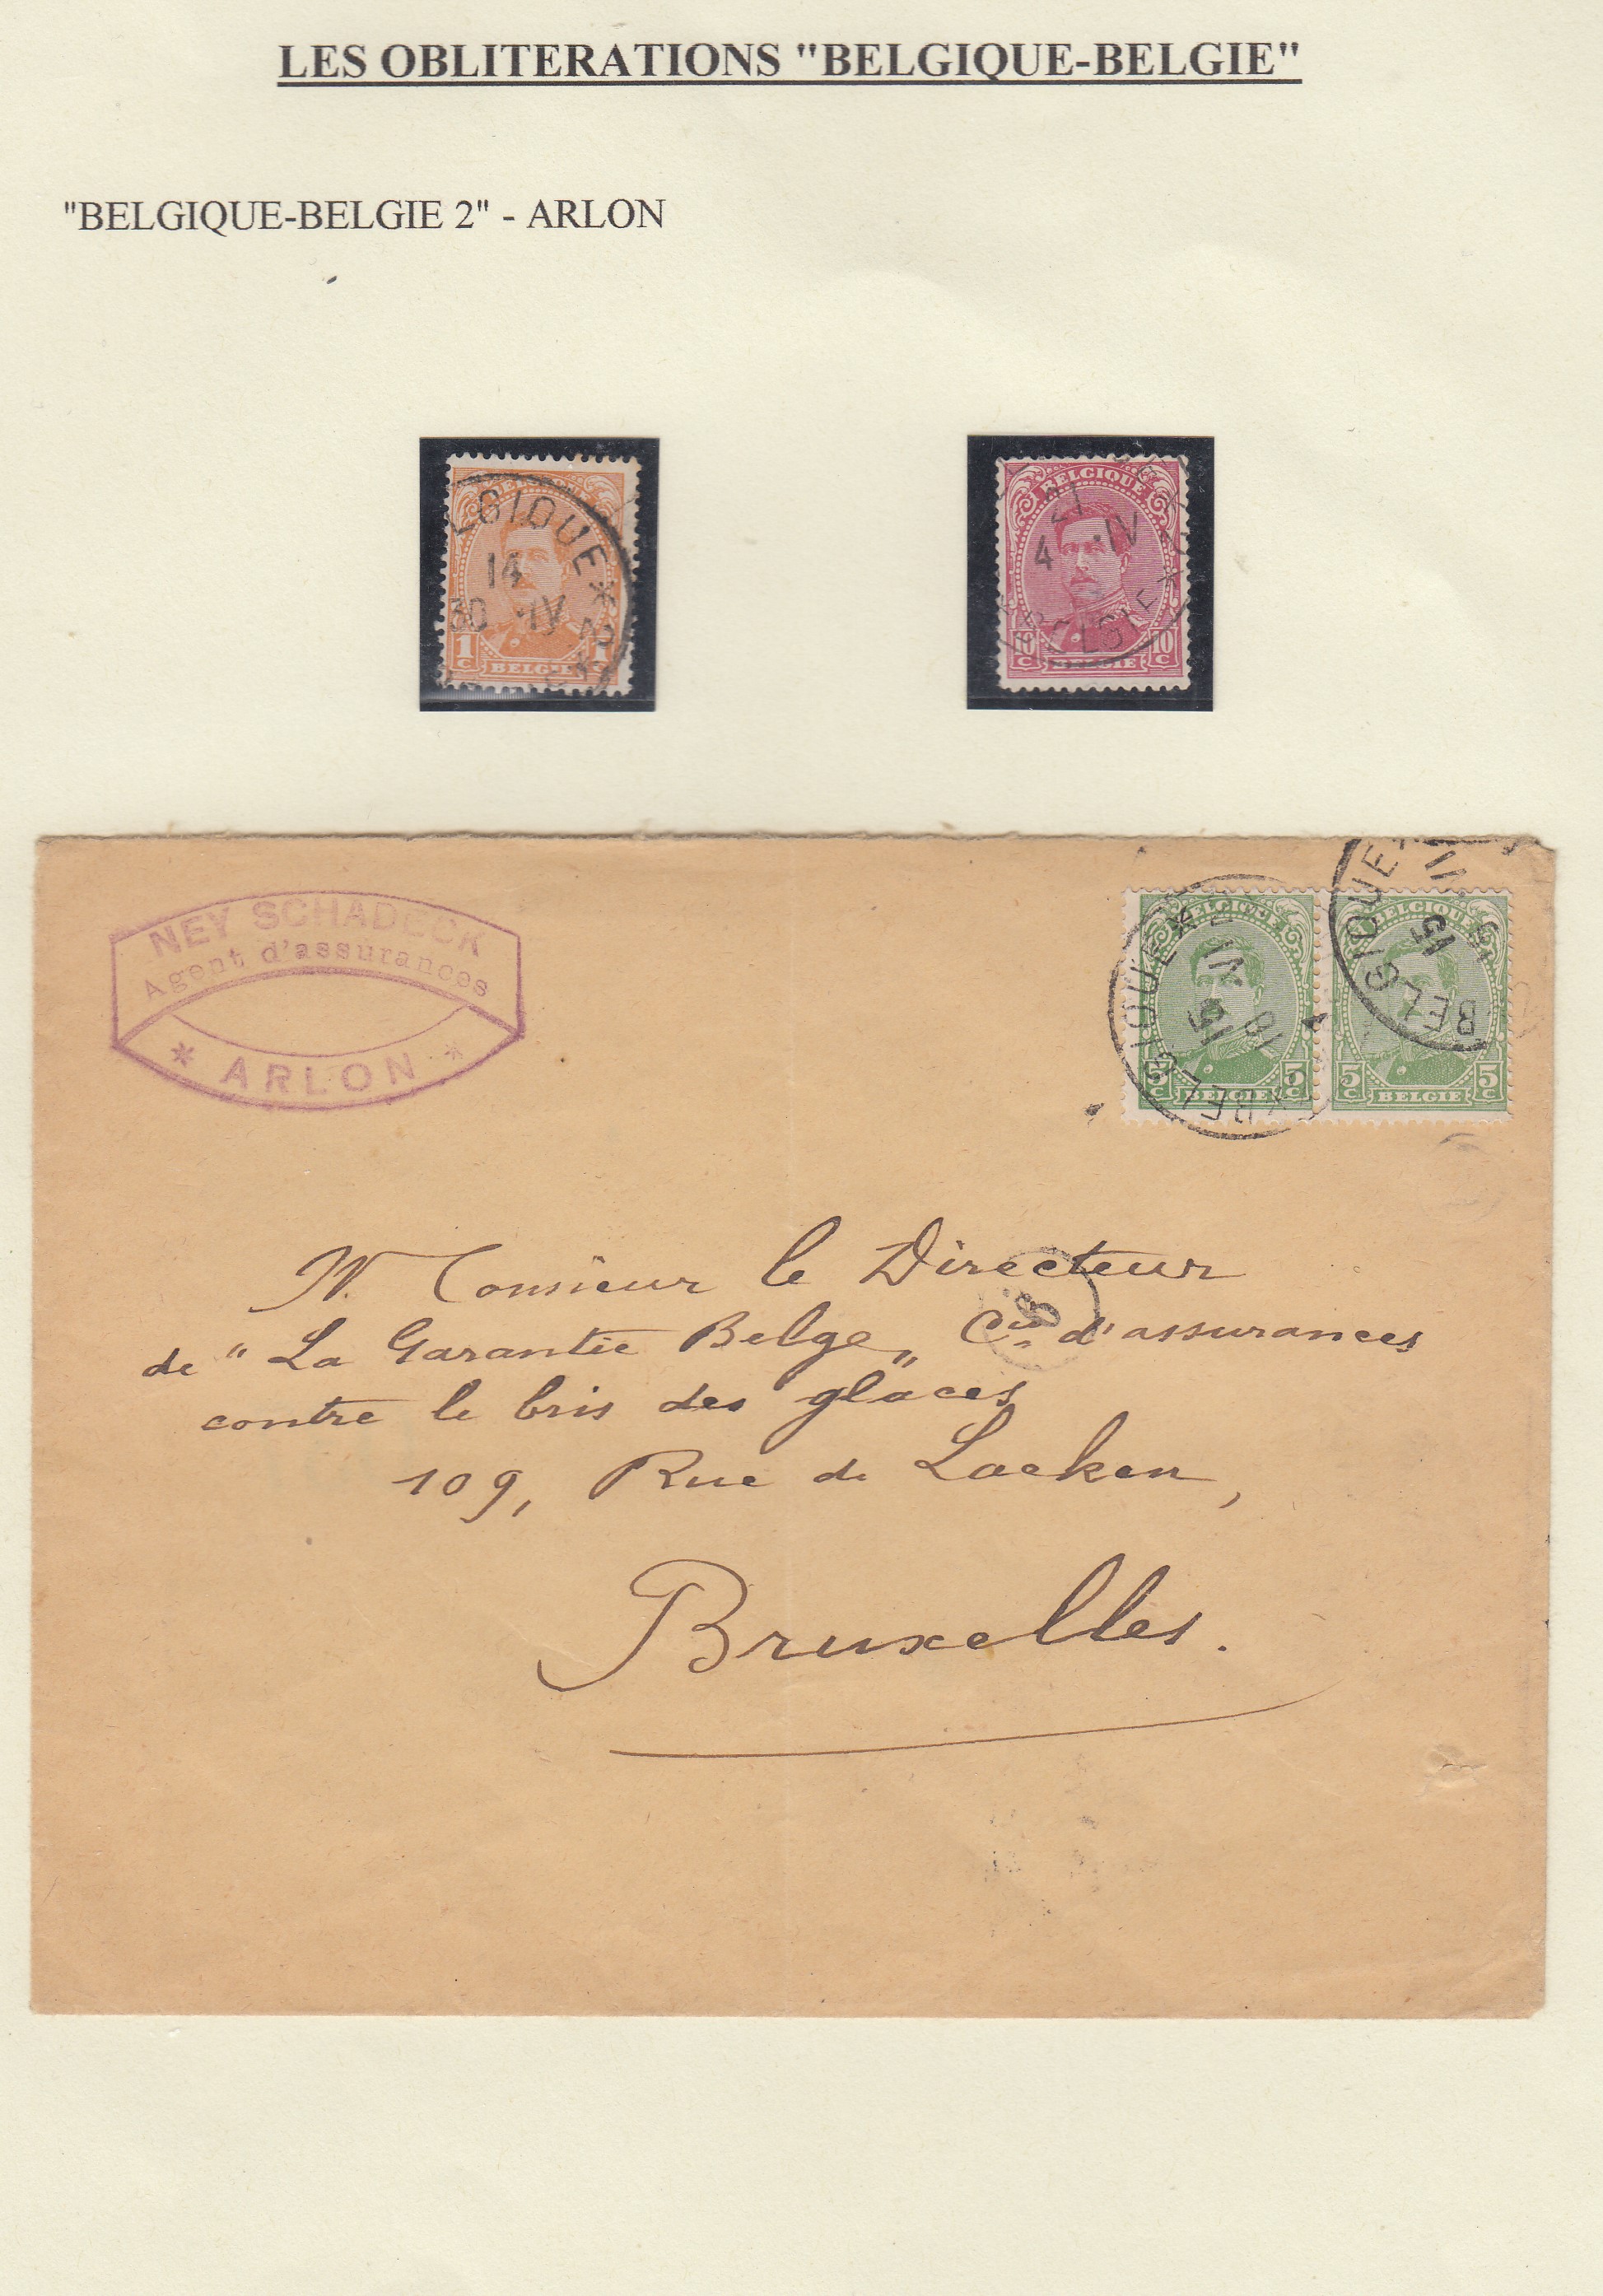 LES OBLITERATIONS "BELGIQUE-BELGIE"
"BELGIQUE-BELGIE 2" - ARLON
LGIQUE * 2
14
30 ·IV
1 C BELGIE
BELGIQUE
21
4 ·IV
BELGIE *
10 C 10 C
NEY SCHADECK
Agent d'assurances
* ARLON *
BELGIQUE *
18
15
VI
5 C BELGIE 5 C
BELGIQUE-
15
VI
BELGIQUE
5 C BELGIE 5 C
Monsieur le Directeur
8
de "La Garantie Belge„ Cie d'assurances
contre le bris des glaces
109, Rue de Laeken,
Bruxelles.